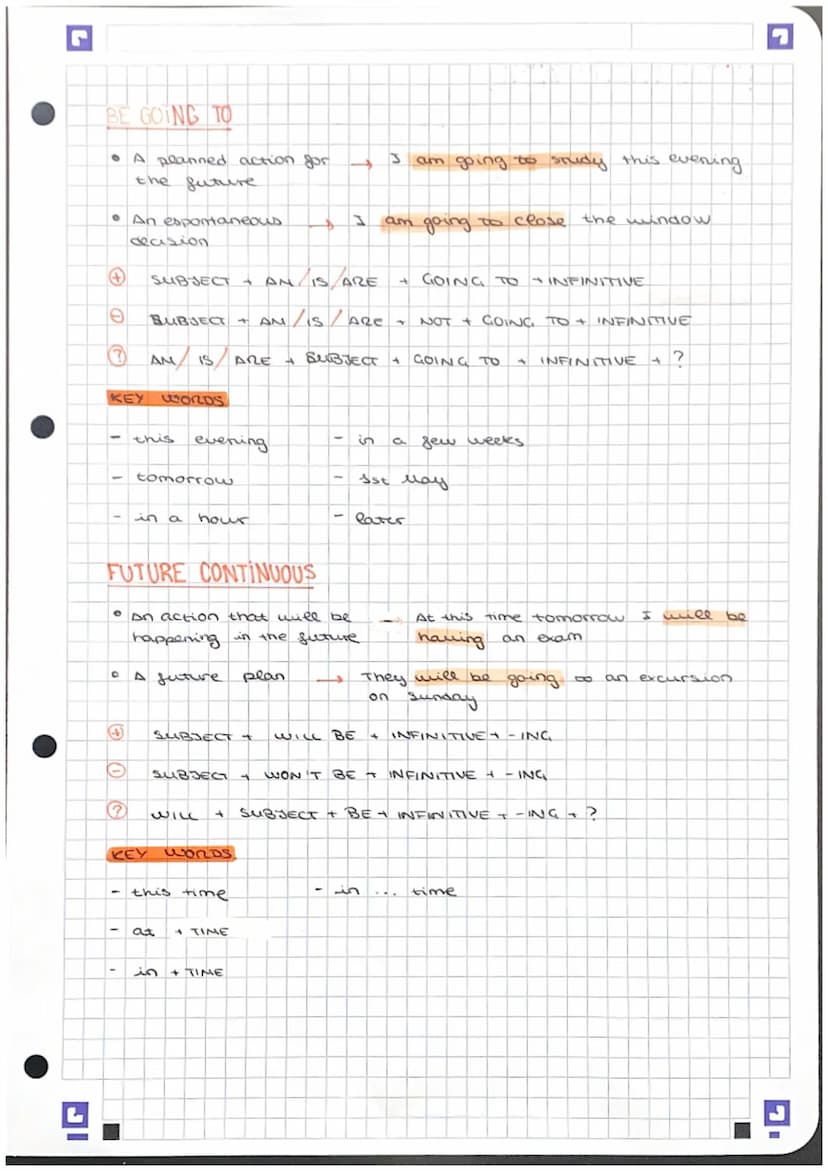 BE GOING TO
• A planned action for → I am going to study this evening
the future
• An espontaneous → I am going to close the window
decision
+ SUBJECT + AM/IS/ARE + GOING TO + INFINITIVE
- SUBJECT + AM/IS/ARE + NOT + GOING TO + INFINITIVE
? AM/IS/ARE + SUBJECT + GOING TO + INFINITIVE + ?
KEY WORDS
- this evening - in a few weeks
- tomorrow - 1st May
- in a hour - later
FUTURE CONTINUOUS
• An action that will be → At this time tomorrow I will be
happening in the future having an exam
• A future plan → They will be going to an excursion
on sunday
+ SUBJECT + WILL BE + INFINITIVE + -ING
- SUBJECT + WON'T BE + INFINITIVE + -ING
? WILL + SUBJECT + BE + INFINITIVE + -ING + ?
KEY WORDS
- this time - in ... time
- at + TIME
- in + TIME